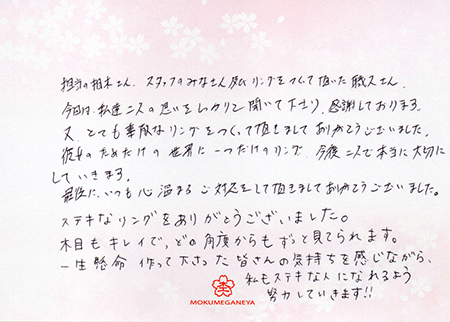 担当の柏木さん、スタッフのみなさん及びリングをつくって頂いた職人さん、
今回は、私達二人の思いをしっかりと聞いて下さり、感謝しております。
又、とても素敵なリングをつくって頂きまして ありがとうございました。
彼女のためだけの世界に一つだけのリング、今後二人で本当に大切に
していきます。
最後に、いつも心温まるご対応をして頂きまして ありがとうございました。
ステキなリングをありがとうございました。
木目もキレイで、どの角度からもずっと見てられます。
一生懸命 作って下さった 皆さんの気持ちを感じながら、
私もステキな人になれるよう
努力していきます!!
MOKUMEGANEYA